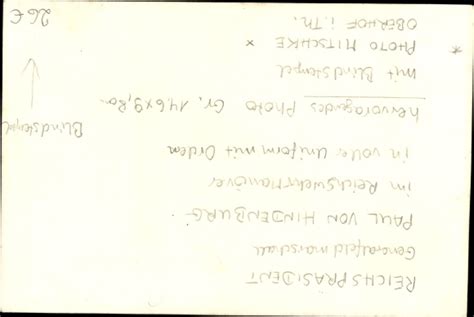 REICHSPRÄSIDENT
Generalfeldmarschall
PAUL VON HINDENBURG
im Reichswehrmanöver
in voller Uniform mit Orden
hervorragendes Photo Gr. 14,6x9,8cm
mit Blindstempel
* PHOTO MITSCHKE *
OBERHOF i. TH.
Blindstempel
26€